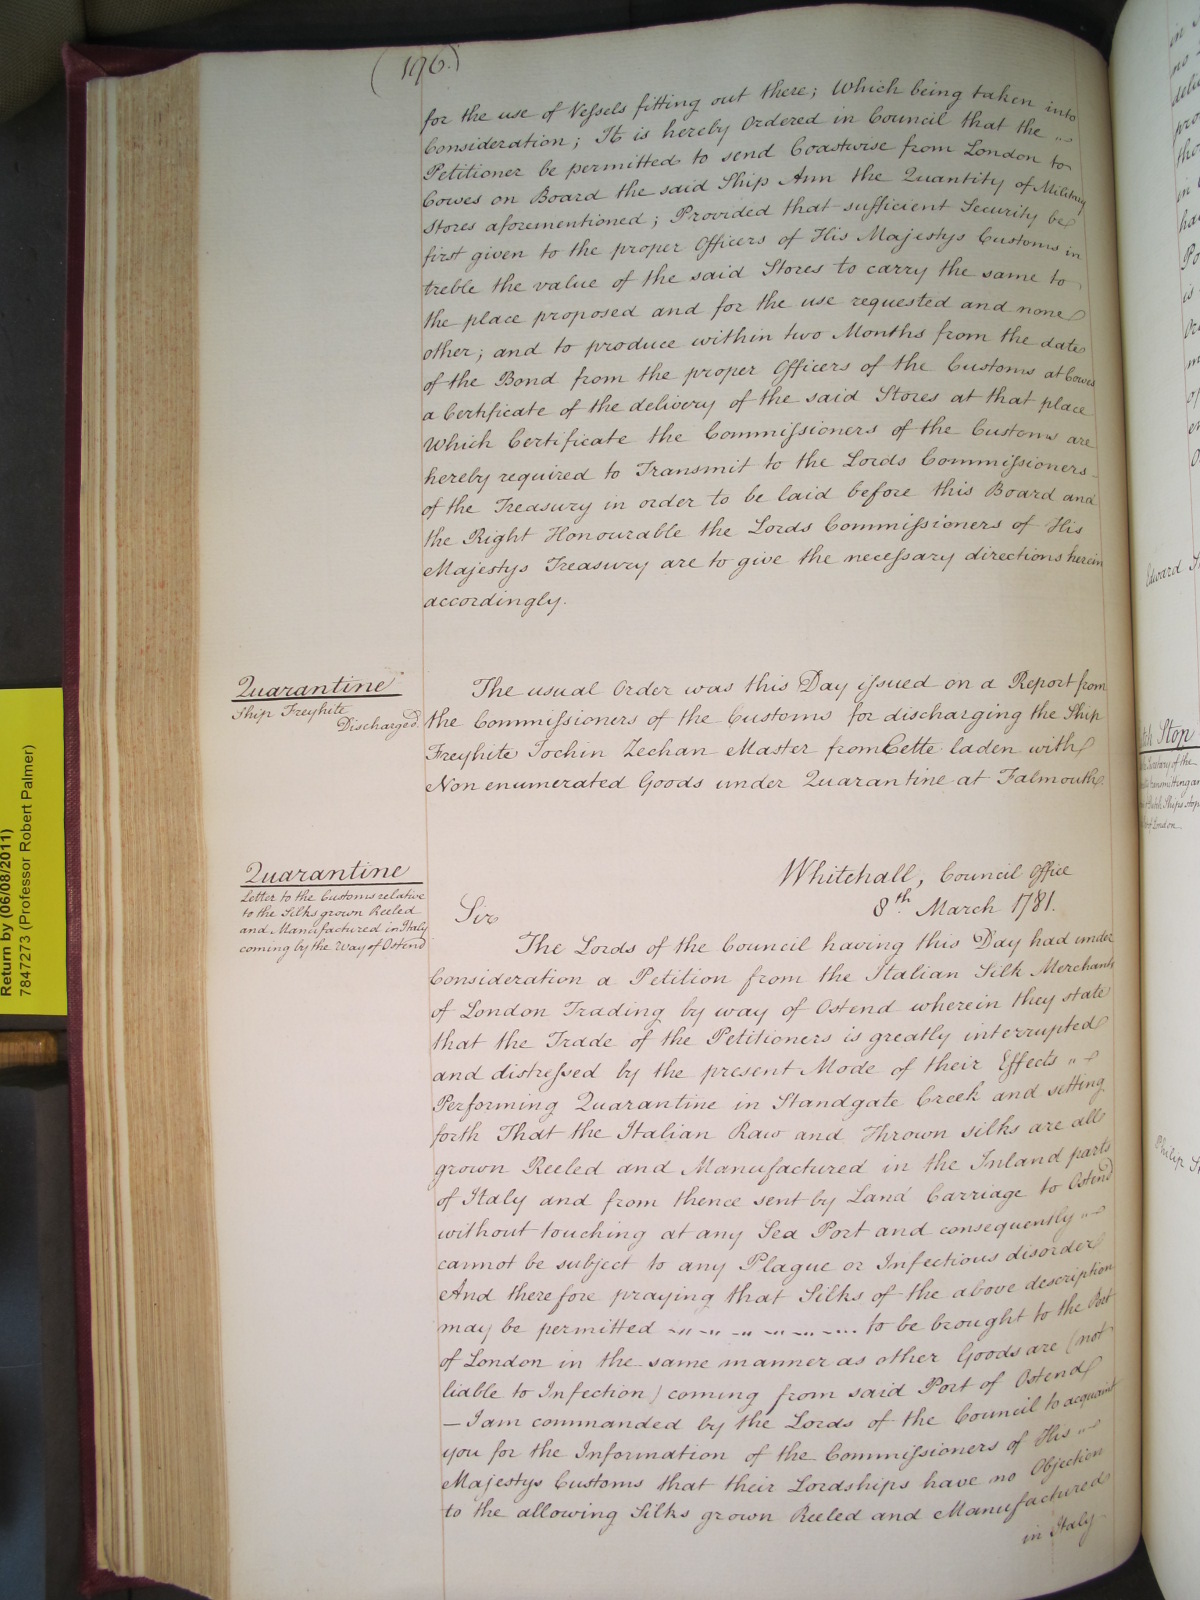 (196.)
for the use of Vessels fitting out there; Which being taken into
Consideration; It is hereby Ordered in Council that the
Petitioner be permitted to send Coastwise from London to
Cowes on Board the said Ship Ann the Quantity of Military
Stores aforementioned; Provided that sufficient Security be
first given to the proper Officers of His Majestys Customs in
treble the value of the said Stores to carry the same to
the place proposed and for the use requested and none
other; and to produce within two Months from the date
of the Bond from the proper Officers of the Customs at Cowes
a Certificate of the delivery of the said Stores at that place
Which Certificate the Commissioners of the Customs are
hereby required to Transmit to the Lords Commissioners
of the Treasury in order to be laid before this Board and
the Right Honourable the Lords Commissioners of His
Majestys Treasury are to give the necessary directions herein
accordingly.
Quarantine
Ship Freyhite
Discharged
The usual Order was this Day issued on a Report from
the Commissioners of the Customs for discharging the Ship
Freyhite Jochin Zechan Master from Cette laden with
Non enumerated Goods under Quarantine at Falmouth
Quarantine
Letter to the Customs relative
to the Silks grown Reeled
and Manufactured in Italy
coming by the Way of Ostend
Whitehall, Council Office
8th March 1781.
Sir
The Lords of the Council having this Day had under
Consideration a Petition from the Italian Silk Merchants
of London Trading by way of Ostend wherein they state
that the Trade of the Petitioners is greatly interrupted
and distressed by the present Mode of their Effects
Performing Quarantine in Standgate Creek and setting
forth That the Italian Raw and Thrown silks are all
grown Reeled and Manufactured in the Inland parts
of Italy and from thence sent by Land Carriage to Ostend
without touching at any Sea Port and consequently
cannot be subject to any Plague or Infectious disorder
And therefore praying that Silks of the above description
may be permitted to be brought to the Port
of London in the same manner as other Goods are (not
liable to Infection) coming from said Port of Ostend
— I am commanded by the Lords of the Council to acquaint
you for the Information of the Commissioners of His
Majestys Customs that their Lordships have no Objection
to the allowing Silks grown Reeled and Manufactured
in Italy
Return by (06/08/2011)
7847273 (Professor Robert Palmer)
Edward
Stop
Philip